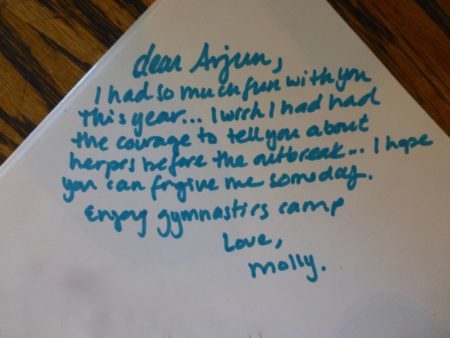 dear Arjun,
I had so much fun with you
this year... I wish I had had
the courage to tell you about
herpes before the outbreak... I hope
you can forgive me someday.
Enjoy gymnastics camp
Love,
Molly.